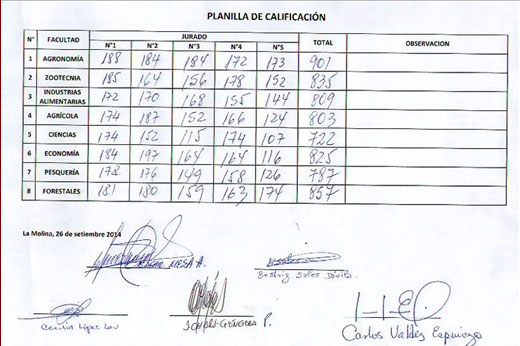 PLANILLA DE CALIFICACIÓN
N° FACULTAD JURADO TOTAL OBSERVACION
N°1 N°2 N°3 N°4 N°5
1 AGRONOMÍA 188 184 184 172 173 901
2 ZOOTECNIA 185 164 156 178 152 835
3 INDUSTRIAS ALIMENTARIAS 172 170 168 155 144 809
4 AGRÍCOLA 174 187 152 166 124 803
5 CIENCIAS 174 152 115 174 107 722
6 ECONOMÍA 184 197 164 164 116 825
7 PESQUERÍA 178 176 149 158 126 787
8 FORESTALES 181 180 159 163 174 857
La Molina, 26 de setiembre 2014
MESA A.
Beatriz Sales Dávila
Cecilia López Lau
P.
Carlos Valdez Espinoza